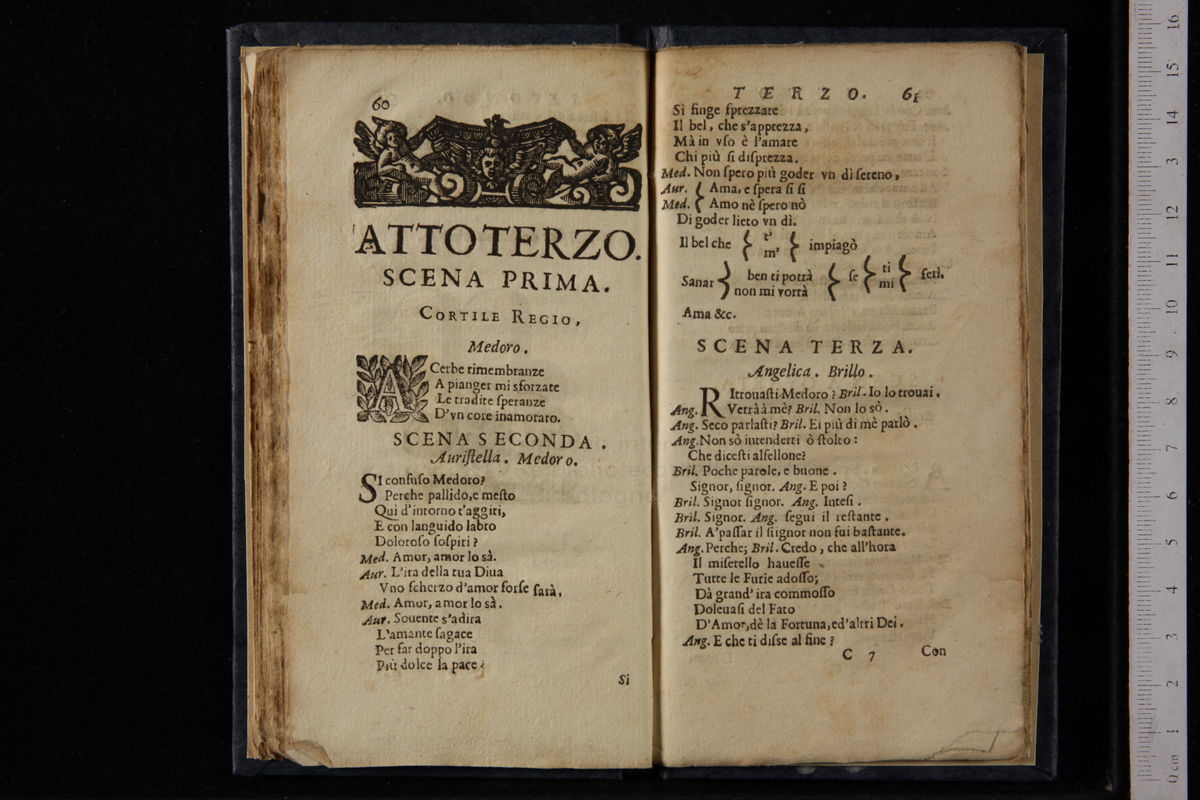 60
ATTO TERZO.
SCENA PRIMA.
CORTILE REGIO,
Medoro.
ACerbe rimembranze
A pianger mi sforzate
Le tradite speranze
D'vn core inamorato.
SCENA SECONDA.
Auriſtella. Medoro.
SI confuſo Medoro?
Perche pallido, e meſto
Qui d'intorno t'aggiri,
E con languido labro
Doloroſo ſoſpiri?
Med. Amor, amor lo sà.
Aur. L'ira della tua Diua
Vno ſcherzo d'amor forſe ſarà,
Med. Amor, amor lo sà.
Aur. Souente s'adira
L'amante ſagace
Per far doppo l'ira
Più dolce la pace;
Si
TERZO. 61
Si finge ſprezzare
Il bel, che s'apprezza,
Mà in vſo è l'amare
Chi più ſi diſprezza.
Med. Non ſpero più goder vn dì ſereno,
Aur. { Ama, e ſpera ſi ſi
Med. { Amo nè ſpero nò
Di goder lieto vn dì.
Il bel che { t' } impiagò
{ m' }
Sanar } ben ti potrà } ſe } ti } ferì.
} non mi vorrà } } mi }
Ama &c.
SCENA TERZA.
Angelica. Brillo.
Ang. RItrouaſti Medoro? Bril. Io lo trouai.
Verrà à mè? Bril. Non lo sò.
Ang. Seco parlaſti? Bril. Ei più di mè parlò.
Ang. Non sò intenderti ò ſtolto:
Che diceſti alfellone?
Bril. Poche parole, e buone.
Signor, ſignor. Ang. E poi?
Bril. Signor ſignor. Ang. Inteſi.
Bril. Signor. Ang. ſegui il reſtante.
Bril. A'paſſar il ſignor non fui baſtante.
Ang. Perche; Bril. Credo, che all'hora
Il miſerello haueſſe
Tutte le Furie adoſſo;
Dà grand' ira commoſſo
Doleuaſi del Fato
D'Amor, dè la Fortuna, ed'altri Dei.
Ang. E che ti diſse al fine?
C 7 Con
0 cm 1 2 3 4 5 6 7 8 9 10 11 12 13 14 15 16